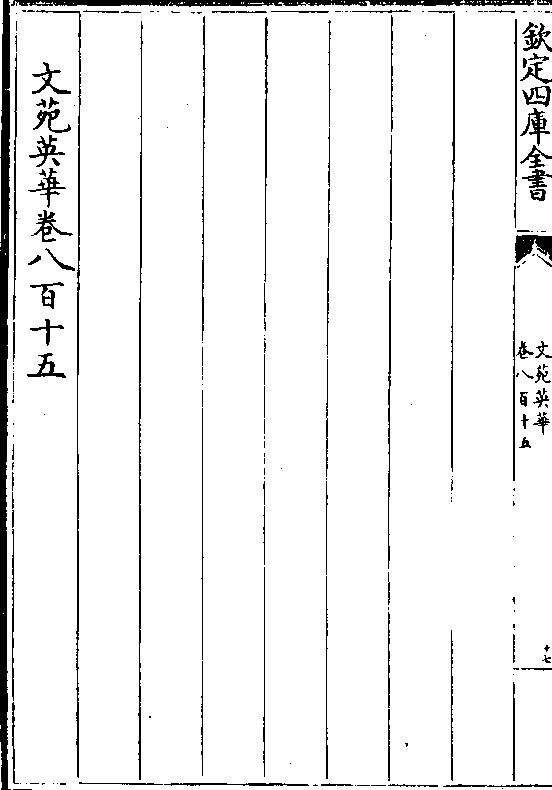 欽定四庫全書
文苑英華
卷八百十五
十七
文苑英華卷八百十五